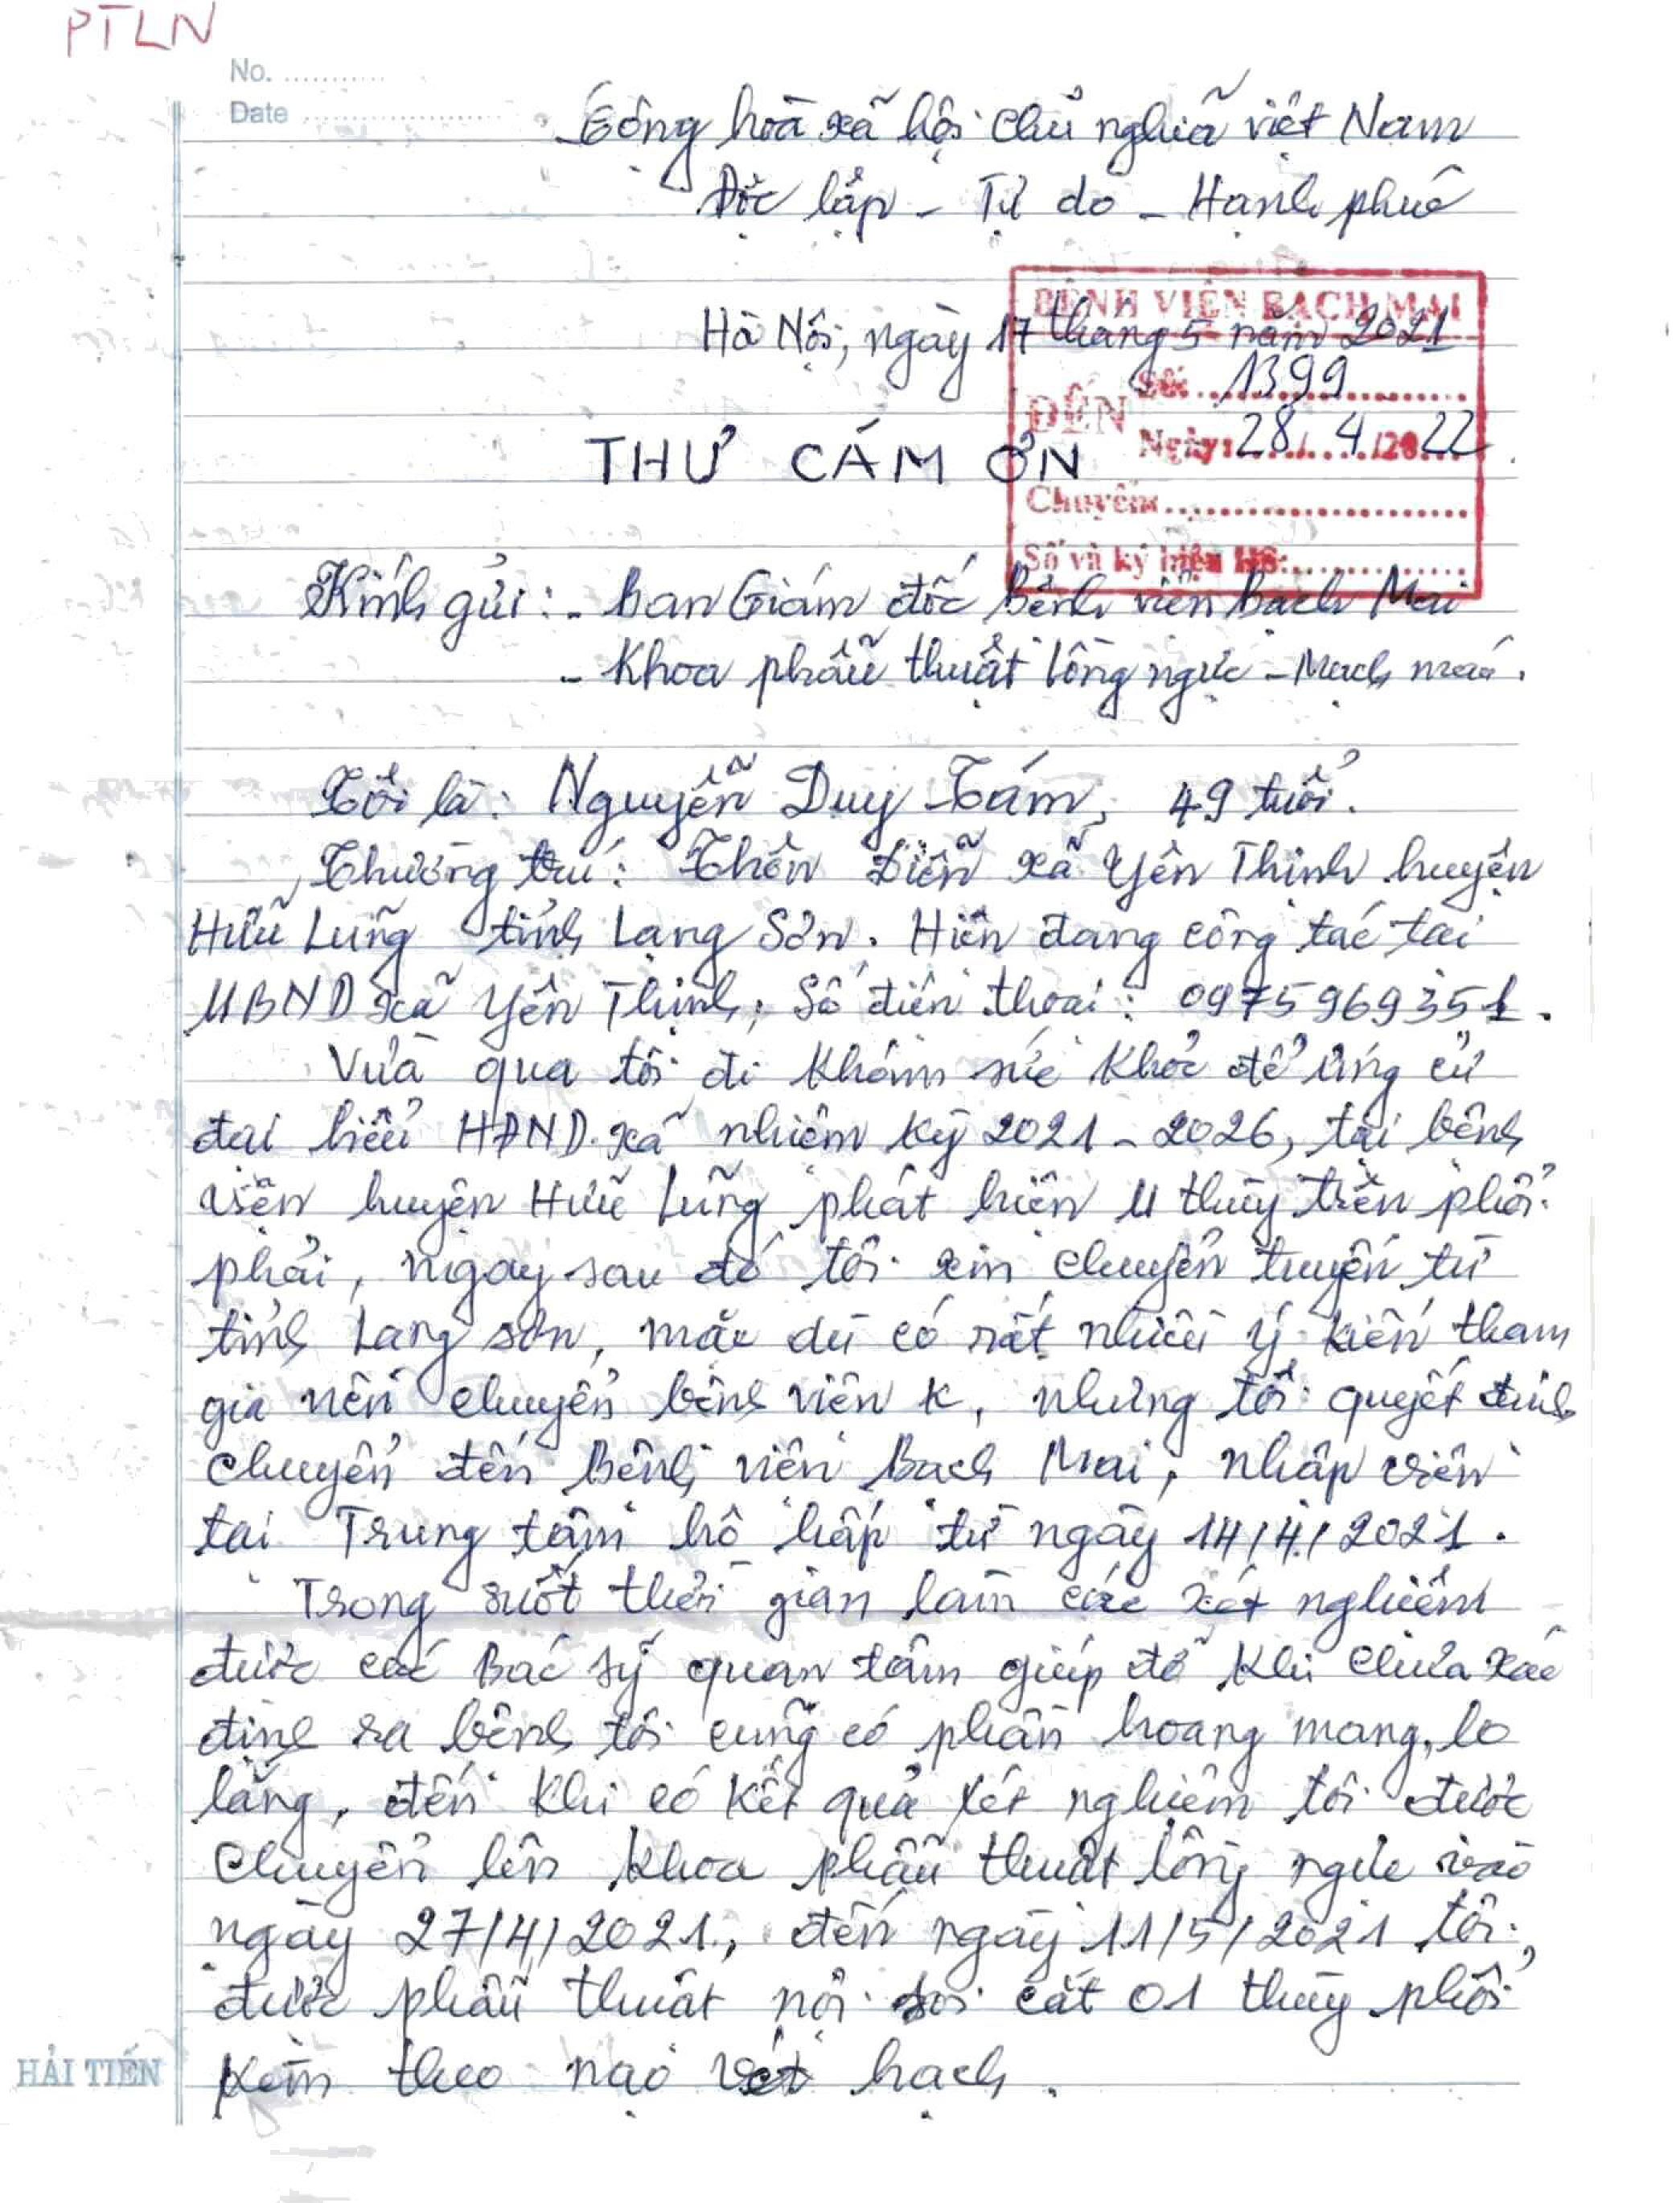 PTLN
No. ............
Date ........................
Cộng hoà xã hội chủ nghĩa việt Nam
Độc lập - Tự do - Hạnh phúc
BỆNH VIỆN BẠCH MAI
Hà Nội, ngày 17 tháng 5 năm 2021
Số: 1399
ĐẾN
Ngày: 28 / 4 /2022
THƯ CÁM ƠN
Chuyển:
Số và ký hiệu HS:
Kính gửi: - Ban Giám đốc Bệnh viện Bạch Mai
- Khoa phẫu thuật lồng ngực - Mạch máu.
Tôi là: Nguyễn Duy Tám, 49 tuổi.
Thường trú: Thôn Diễn xã Yên Thịnh huyện
Hữu Lũng tỉnh Lạng Sơn. Hiện đang công tác tại
UBND xã Yên Thịnh; Số điện thoại: 0975969351.
Vừa qua tôi đi khám sức khỏe để ứng cử
đại biểu HĐND xã nhiệm kỳ 2021 - 2026, tại bệnh
viện huyện Hữu Lũng phát hiện U thùy trên phổi
phải, ngay sau đó tôi xin chuyển tuyến từ
tỉnh Lạng sơn, mặc dù có rất nhiều ý kiến tham
gia nên chuyển bệnh viện K, nhưng tôi quyết định
chuyển đến Bệnh viện Bạch Mai, nhập viện
tại Trung tâm hô hấp từ ngày 14/4/2021.
Trong suốt thời gian làm các xét nghiệm
được các Bác sỹ quan tâm giúp đỡ khi chưa xác
định ra bệnh tôi cũng có phần hoang mang, lo
lắng, đến khi có kết quả xét nghiệm tôi được
chuyển lên khoa phẫu thuật lồng ngực vào
ngày 27/4/2021, đến ngày 11/5/2021 tôi
được phẫu thuật nội soi cắt 01 thùy phổi
kèm theo nạo vét hạch.
HẢI TIẾN